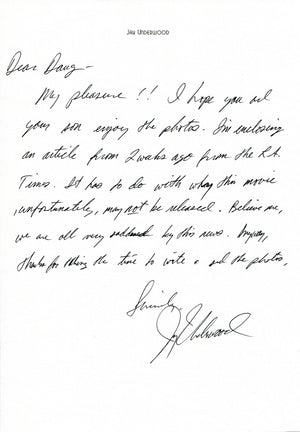 JAY UNDERWOOD
Dear Doug –
My pleasure !! I hope you and
your son enjoy the photos. I'm enclosing
an article from 2 weeks ago from the L.A.
Times. It has to do with why this movie
, unfortunately, may not be released. Believe me,
we are all very saddened by this news. Anyway,
thanks for taking the time to write & and the photos,
Sincerely,
Jay Underwood